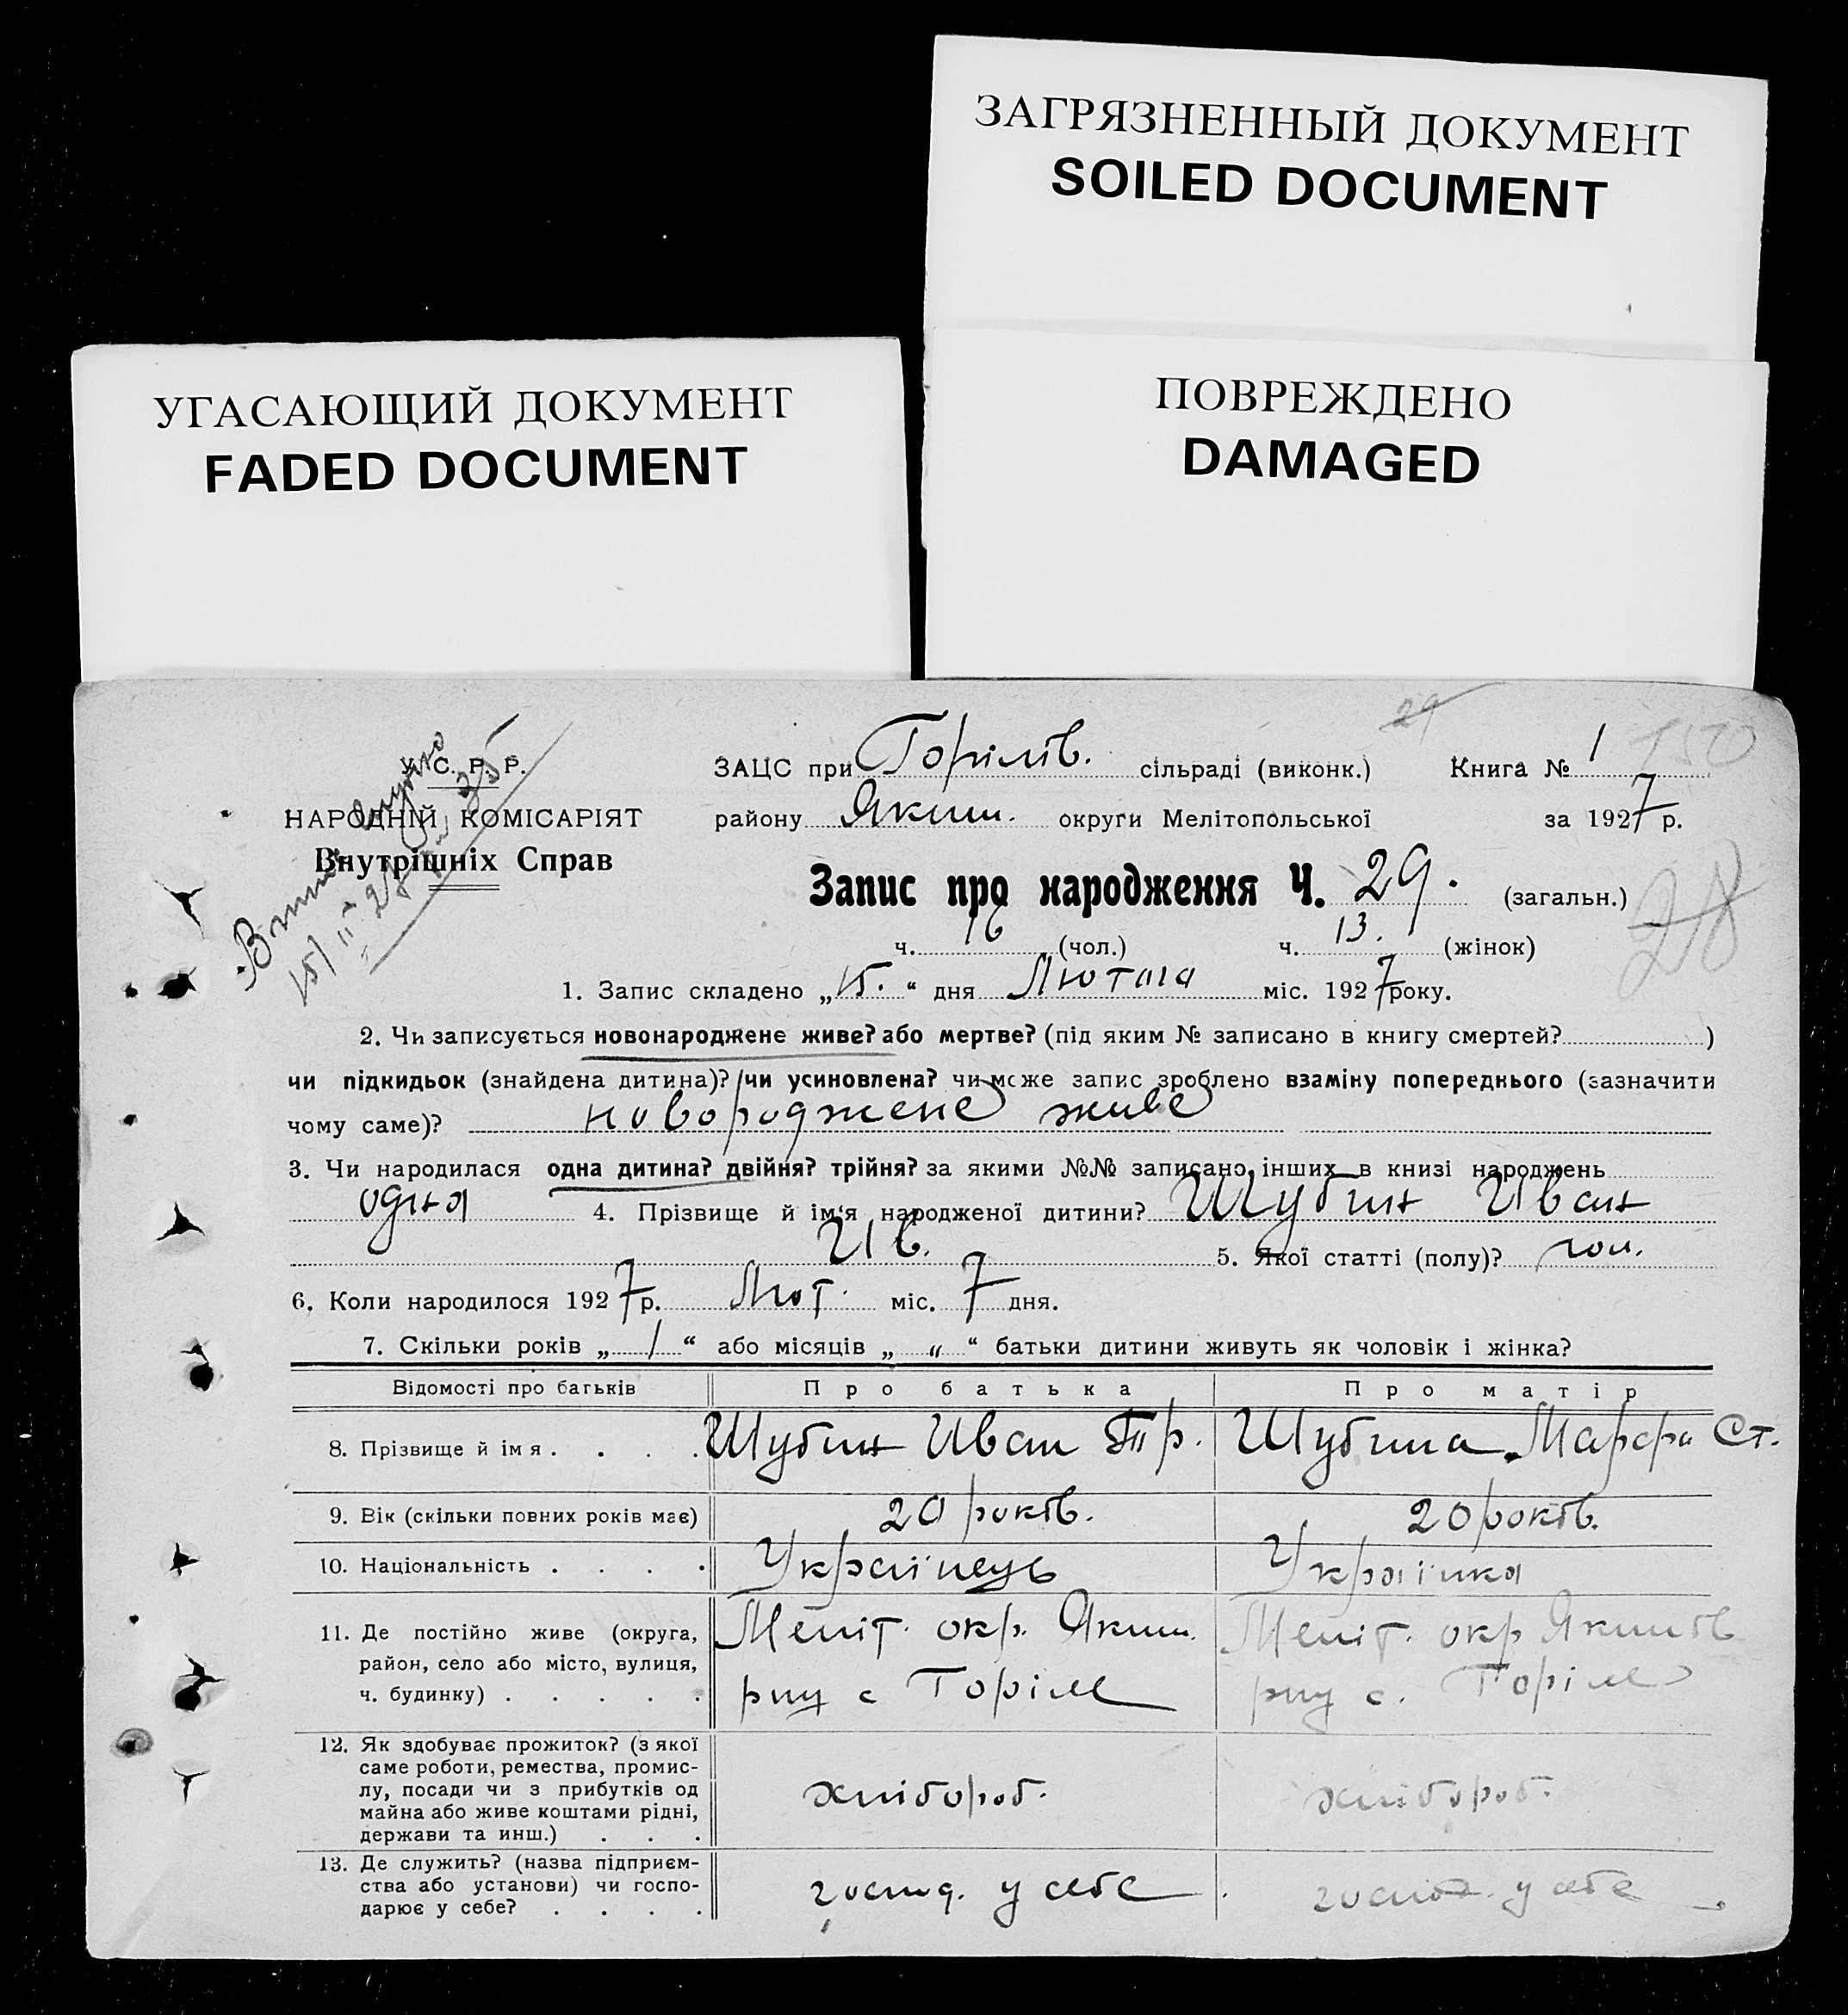 ЗАГРЯЗНЕННЫЙ ДОКУМЕНТ
SOILED DOCUMENT
УГАСАЮЩИЙ ДОКУМЕНТ
FADED DOCUMENT
ПОВРЕЖДЕНО
DAMAGED
29
150
У. С. Р. Р.
НАРОДНІЙ КОМІСАРІЯТ
Внутрішніх Справ
ЗАЦС при Горілів. сільраді (виконк.) Книга № 1
району Яким. округи Мелітопольської за 1927 р.
Запис про народження Ч. 29. (загальн.)
28
ч. 16 (чол.) ч. 13. (жінок)
1. Запис складено „15.“ дня Лютага міс. 1927 року.
2. Чи записується новонароджене живе? або мертве? (під яким № записано в книгу смертей? )
чи підкидьок (знайдена дитина)? чи усиновлена? чи може запис зроблено взаміну попереднього (зазначити
чому саме)? новороджене живе
3. Чи народилася одна дитина? двійня? трійня? за якими №№ записано інших в книзі народжень
одна 4. Прізвище й ім'я народженої дитини? Шубин Иван
Ив. 5. Якої статті (полу)? чол.
6. Коли народилося 1927 р. Лют. міс. 7 дня.
7. Скільки років „1“ або місяців „ “ “ батьки дитини живуть як чоловік і жінка?
Відомості про батьків Про батька Про матір
8. Прізвище й імя . . . . Шубин Иван Тр. Шубина Марфа Ст.
9. Вік (скільки повних років має) 20 років. 20 років.
10. Національність . . . . Українець Українка
11. Де постійно живе (округа, Меліт. окр. Яким. Меліт. окр Якимів
район, село або місто, вулиця, рну с Горіле рну с. Горіле
ч. будинку) . . . . .
12. Як здобуває прожиток? (з якої
саме роботи, ремества, промис-
лу, посади чи з прибутків од хлібороб. хлібороб.
майна або живе коштами рідні,
держави та инш.) . . .
13. Де служить? (назва підприєм-
ства або установи) чи госпо- господ. у себе господ. у себе
дарює у себе? . . . .